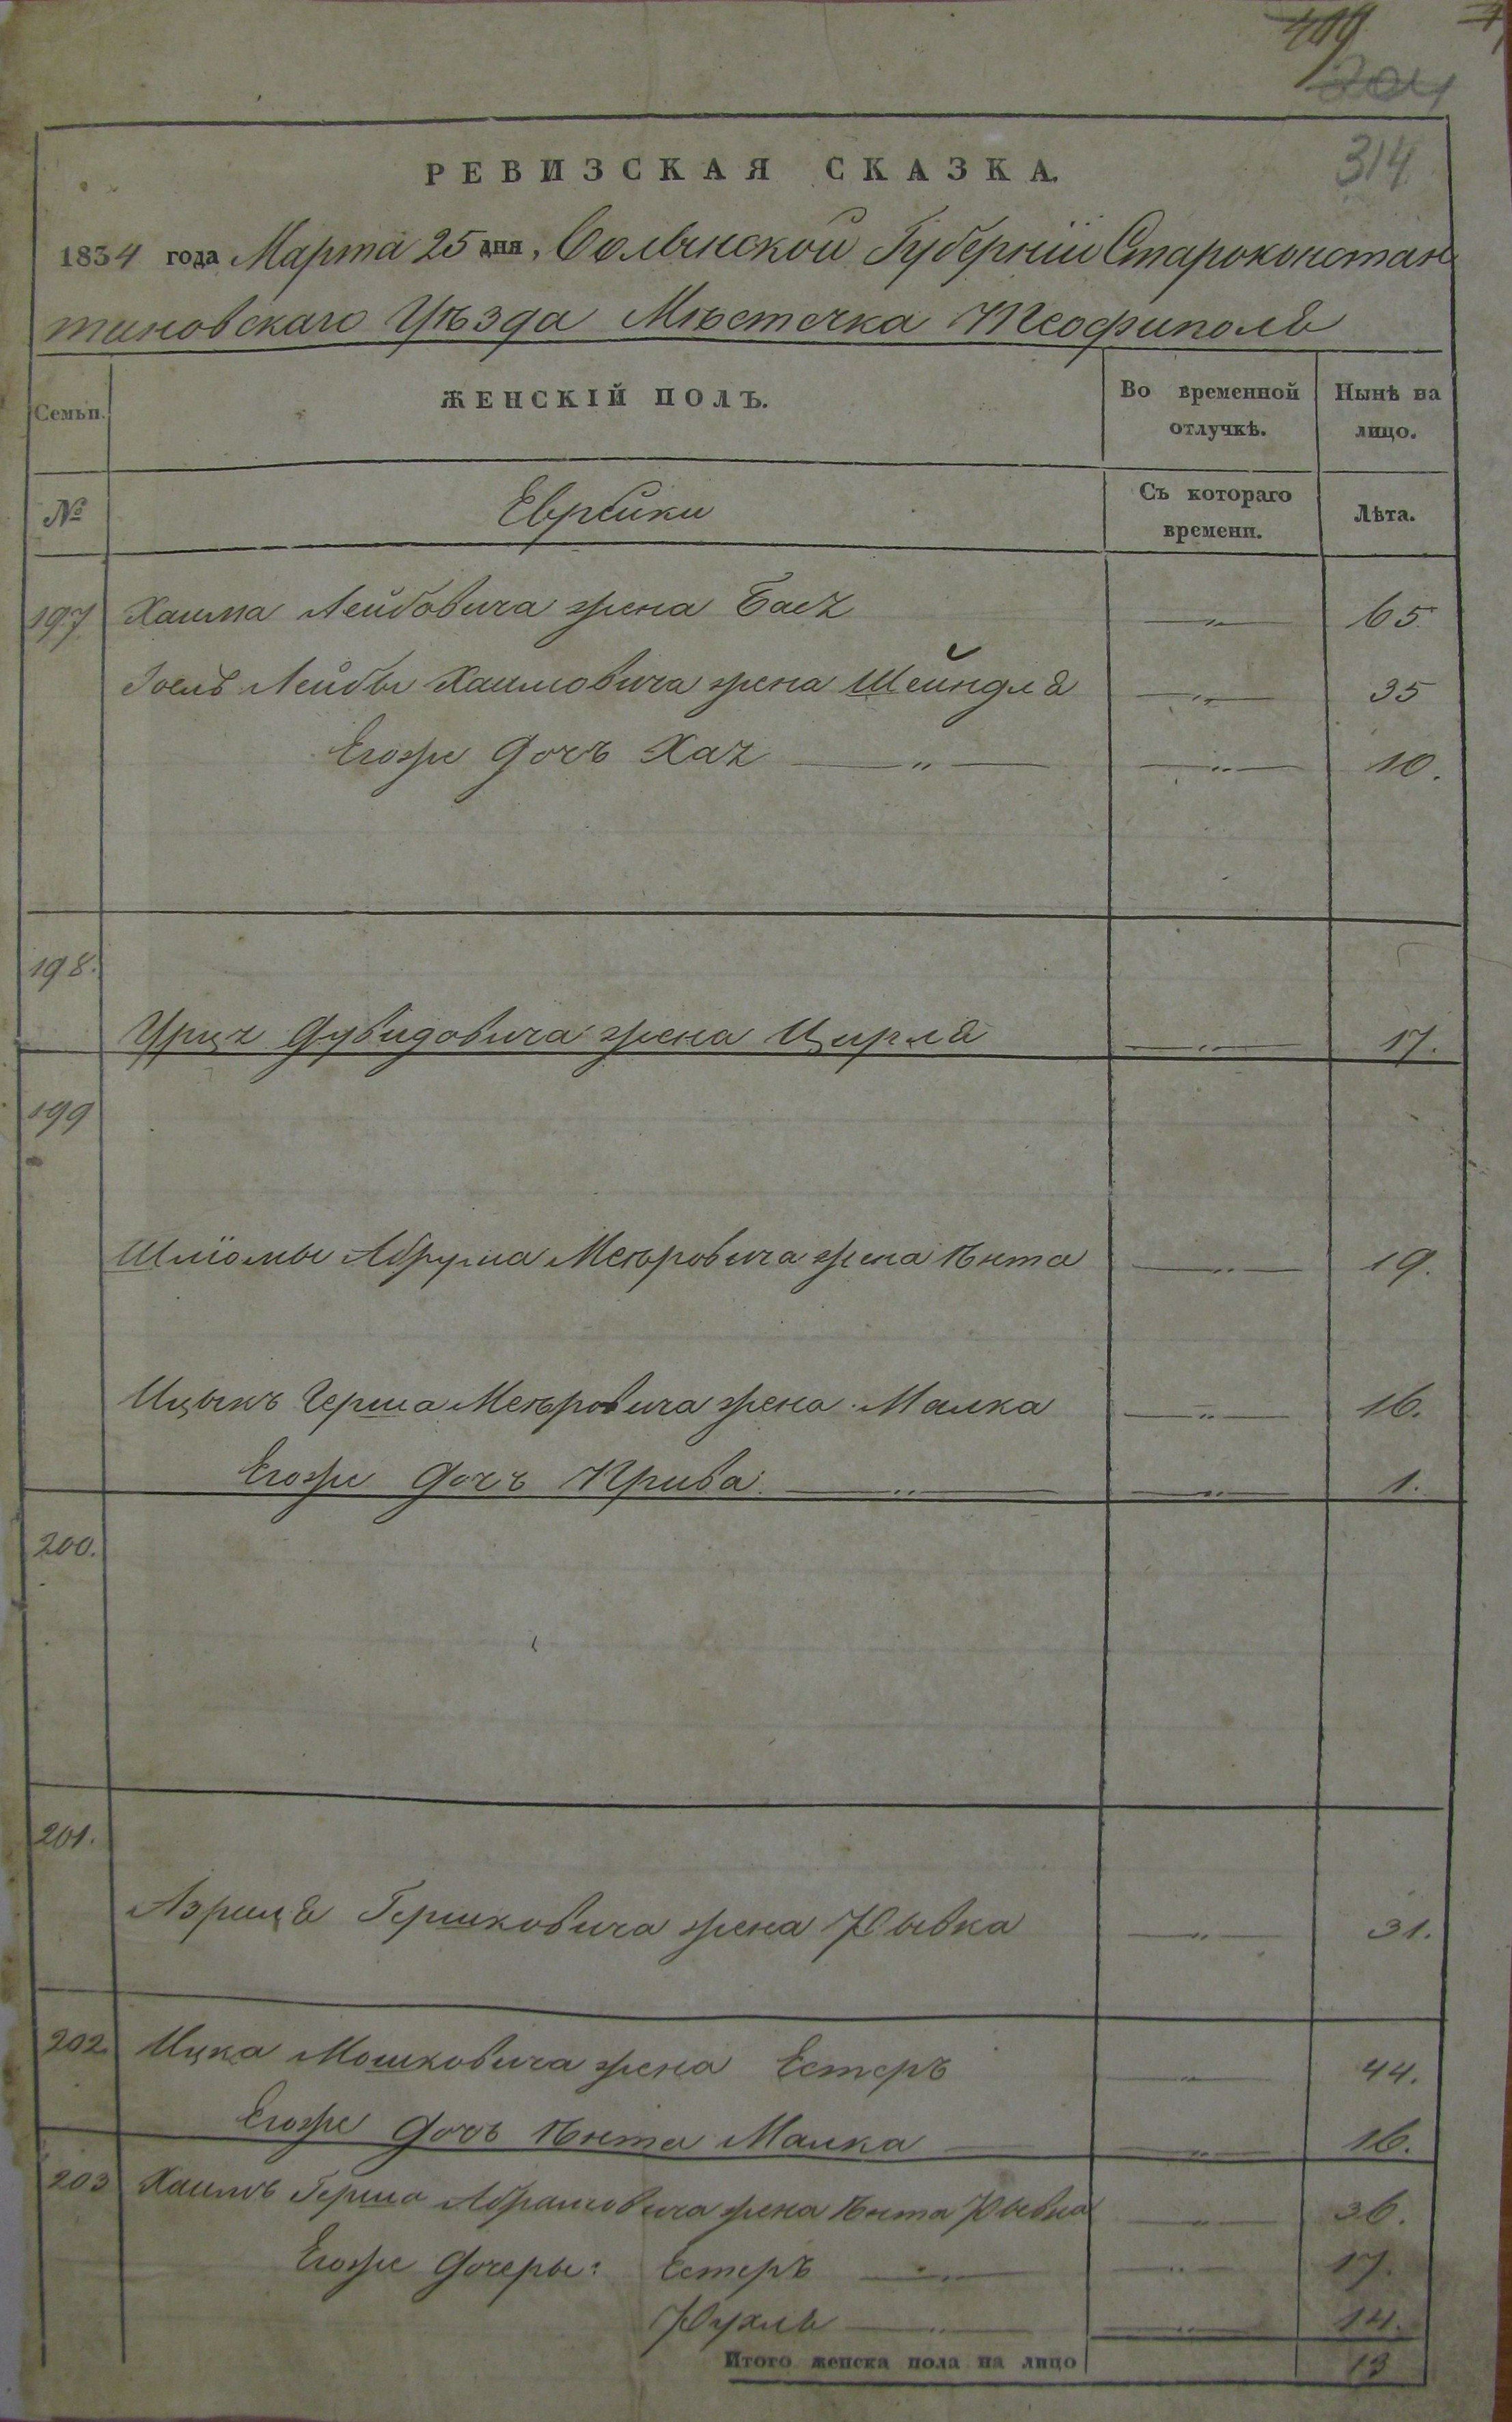 409
204
314
РЕВИЗСКАЯ СКАЗКА.
1834 года Марта 25 дня, Волынской Губерніи Староконстан
тиновскаго Уѣзда Мѣстечка Теофиполя
Семьи. ЖЕНСКІЙ ПОЛЪ. Во временной отлучкѣ. Нынѣ на лицо.
№ Еврейки Съ котораго времени. Лѣта.
197 Хаима Лейбовича жена Бася —„— 65
Іосль Лейбы Хаимовича жена Шейндля —„— 35
Егоже дочь Хая —„— —„— 10.
198.
Уриця Дувидовича жена Цирля —„— 17.
199
Шліомы Абрума Меюровича жена Ѣнта —„— 19.
Ицыкъ Герша Меюровича жена Малка —„— 16.
Егоже дочь Крива —„— —„— 1.
200.
201.
Азриля Гершковича жена Рывка —„— 31.
202. Ицка Мошковича жена Естеръ —„— 44.
Егоже дочь Ѣнта Малка — —„— 16.
203 Хаимъ Герша Абрамовича жена Ѣнта Рывка —„— 36.
Егоже дочеры: Естеръ —„— —„— 17.
Рухль —„— —„— 14.
Итого женска пола на лицо 13